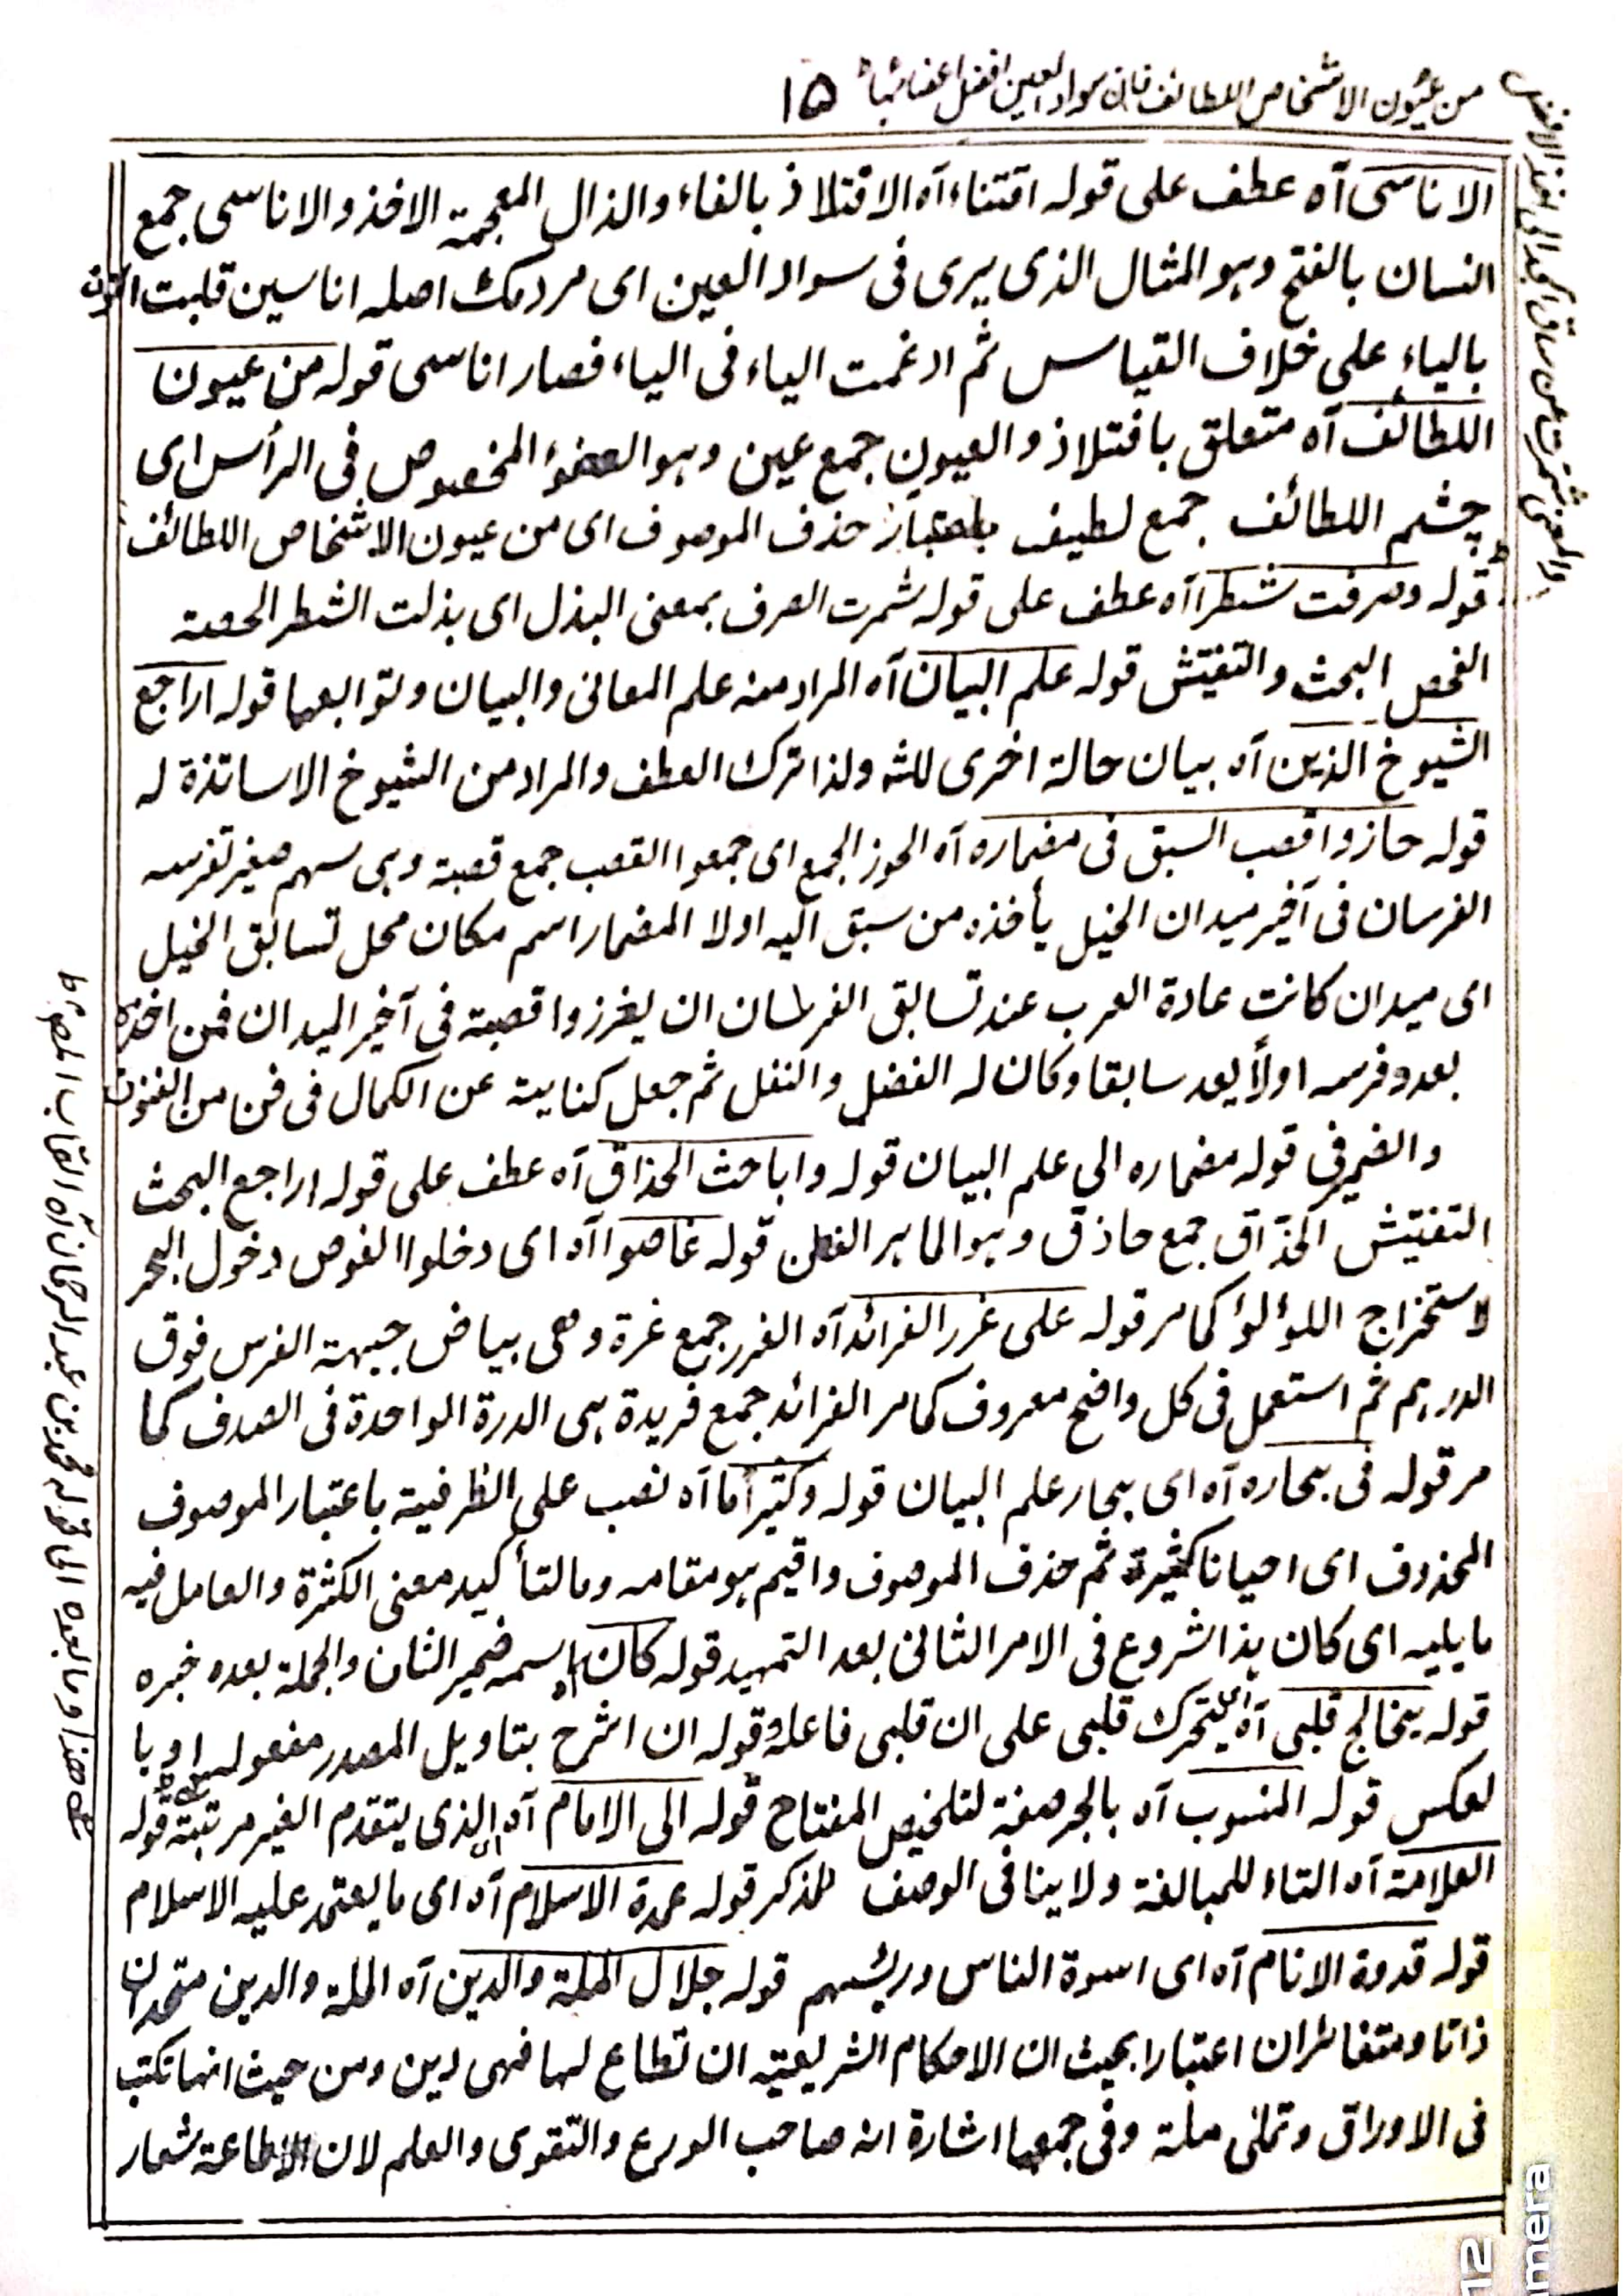 من عيون الاشخاص اللطائف فان سواد العين افضل اعضائها ١٥
الاناسى آه عطف على قوله اقتناء آه الافتلاذ بالفاء والذال المعجمة الاخذ والاناسى جمع
انسان بالفتح وہو المثال الذى يرى فى سواد العين اى مردمك اصله اناسين قلبت النون
بالياء على خلاف القياس ثم ادغمت الياء فى الياء فصار اناسى قوله من عيون
اللطائف آه متعلق بافتلاذ والعيون جمع عين وہو العضو المخصوص فى الرأس اى
چشم اللطائف جمع لطيف باعتبار حذف الموصوف اى من عيون الاشخاص اللطائف
قوله وصرفت شطرا آه عطف على قوله شمرت الصرف بمعنى البذل اى بذلت الشطر الحصة
الفحص البحث والتفتش قوله علم البيان آه المراد منه علم المعانى والبيان وتوابعها قوله اراجع
الشيوخ الذين آه بيان حالة اخرى للشه ولذا ترك العطف والمراد من الشيوخ الاساتذة له
قوله حازوا قصب السبق فى مضماره آه الحوز الجمع اى جمعوا القصب جمع قصبة وہى سہم صغير تغرسه
الفرسان فى آخير ميدان الخيل يأخذه من سبق اليه اولا المضمار اسم مكان محل تسابق الخيل
اى ميدان كانت عادة العرب عند تسابق الفرسان ان يغرزوا قصبة فى آخير الميدان فمن اخذه
بعدو فرسه اولاً يعد سابقا وكان له الفضل والنفل ثم جعل كناية عن الكمال فى فن من الفنون
والضمير فى قوله مضماره الي علم البيان قوله واباحث الحذاق آه عطف على قوله اراجع البحث
التفتيش الحذاق جمع حاذق وہو الماہر الفطن قوله غاصوا آه اى دخلوا الغوص دخول البحر
لاستخراج اللؤلؤ كما مر قوله على غرر الفرائد آه الغرر جمع غرة وهى بياض جبهة الفرس فوق
الدرہم ثم استعمل فى كل واضح معروف كما مر الفرائد جمع فريدة ہى الدرة الواحدة فى الصدف كما
مر قوله فى بحاره آه اى بحار علم البيان قوله وكثيرا ما آه نصب على الظرفية باعتبار الموصوف
المحذوف اى احيانا كثيرة ثم حذف الموصوف واقيم ہو مقامه وما لتأكيد معنى الكثرة والعامل فيه
ما يليه اى كان ہذا شروع فى الامر الثانى بعد التمهيد قوله كان آه اسمه ضمير الشان والجملة بعده خبره
قوله يخالج قلبى آه اى يتحرك قلبى على ان قلبى فاعله وقوله ان اشرح بتاويل المصدر مفعوله او با
لعكس قوله المنسوب آه بالجر صفة لتلخيص المفتاح قوله الى الامام آه الذى يتقدم الغير مرتبة قوله
العلامة آه التاء للمبالغة ولا ينافى الوصف للمذكر قوله عمدة الاسلام آه اى ما يعتمد عليه الاسلام
قوله قدوة الانام آه اى اسوة الناس ورئيسہم قوله جلال الملة والدين آه الملة والدين متحدان
ذاتا ومتغائران اعتبارا بحيث ان الاحكام الشريعتيه ان تطاع لها فهى دين ومن حيث انها تكتب
فى الاوراق وتملى ملة وفى جمعها اشارة انه صاحب الورع والتقوى والعلم لان الاطاعة شعار
12
mera